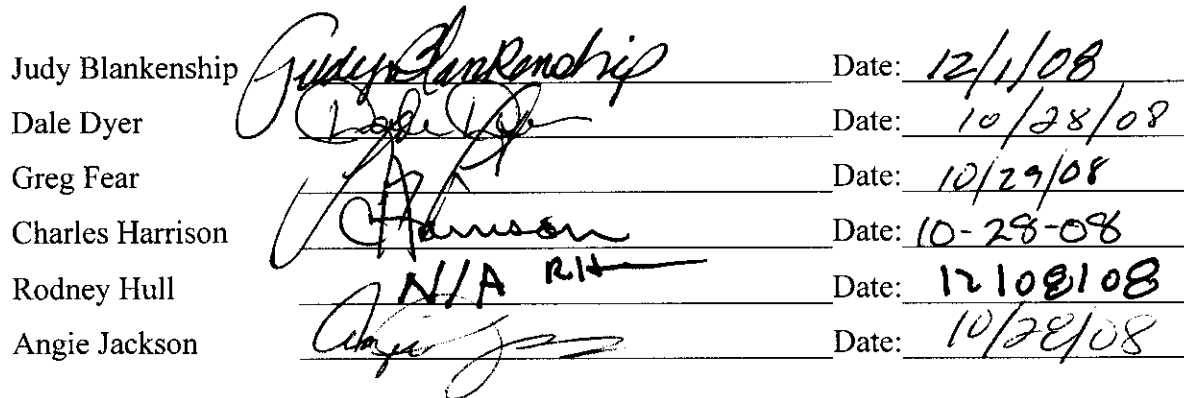 Judy Blankenship Judy Blankenship Date: 12/1/08
Dale Dyer Dale Dyer Date: 10/28/08
Greg Fear Date: 10/29/08
Charles Harrison CHarrison Date: 10-28-08
Rodney Hull N/A RH Date: 12/08/08
Angie Jackson Angie Date: 10/28/08